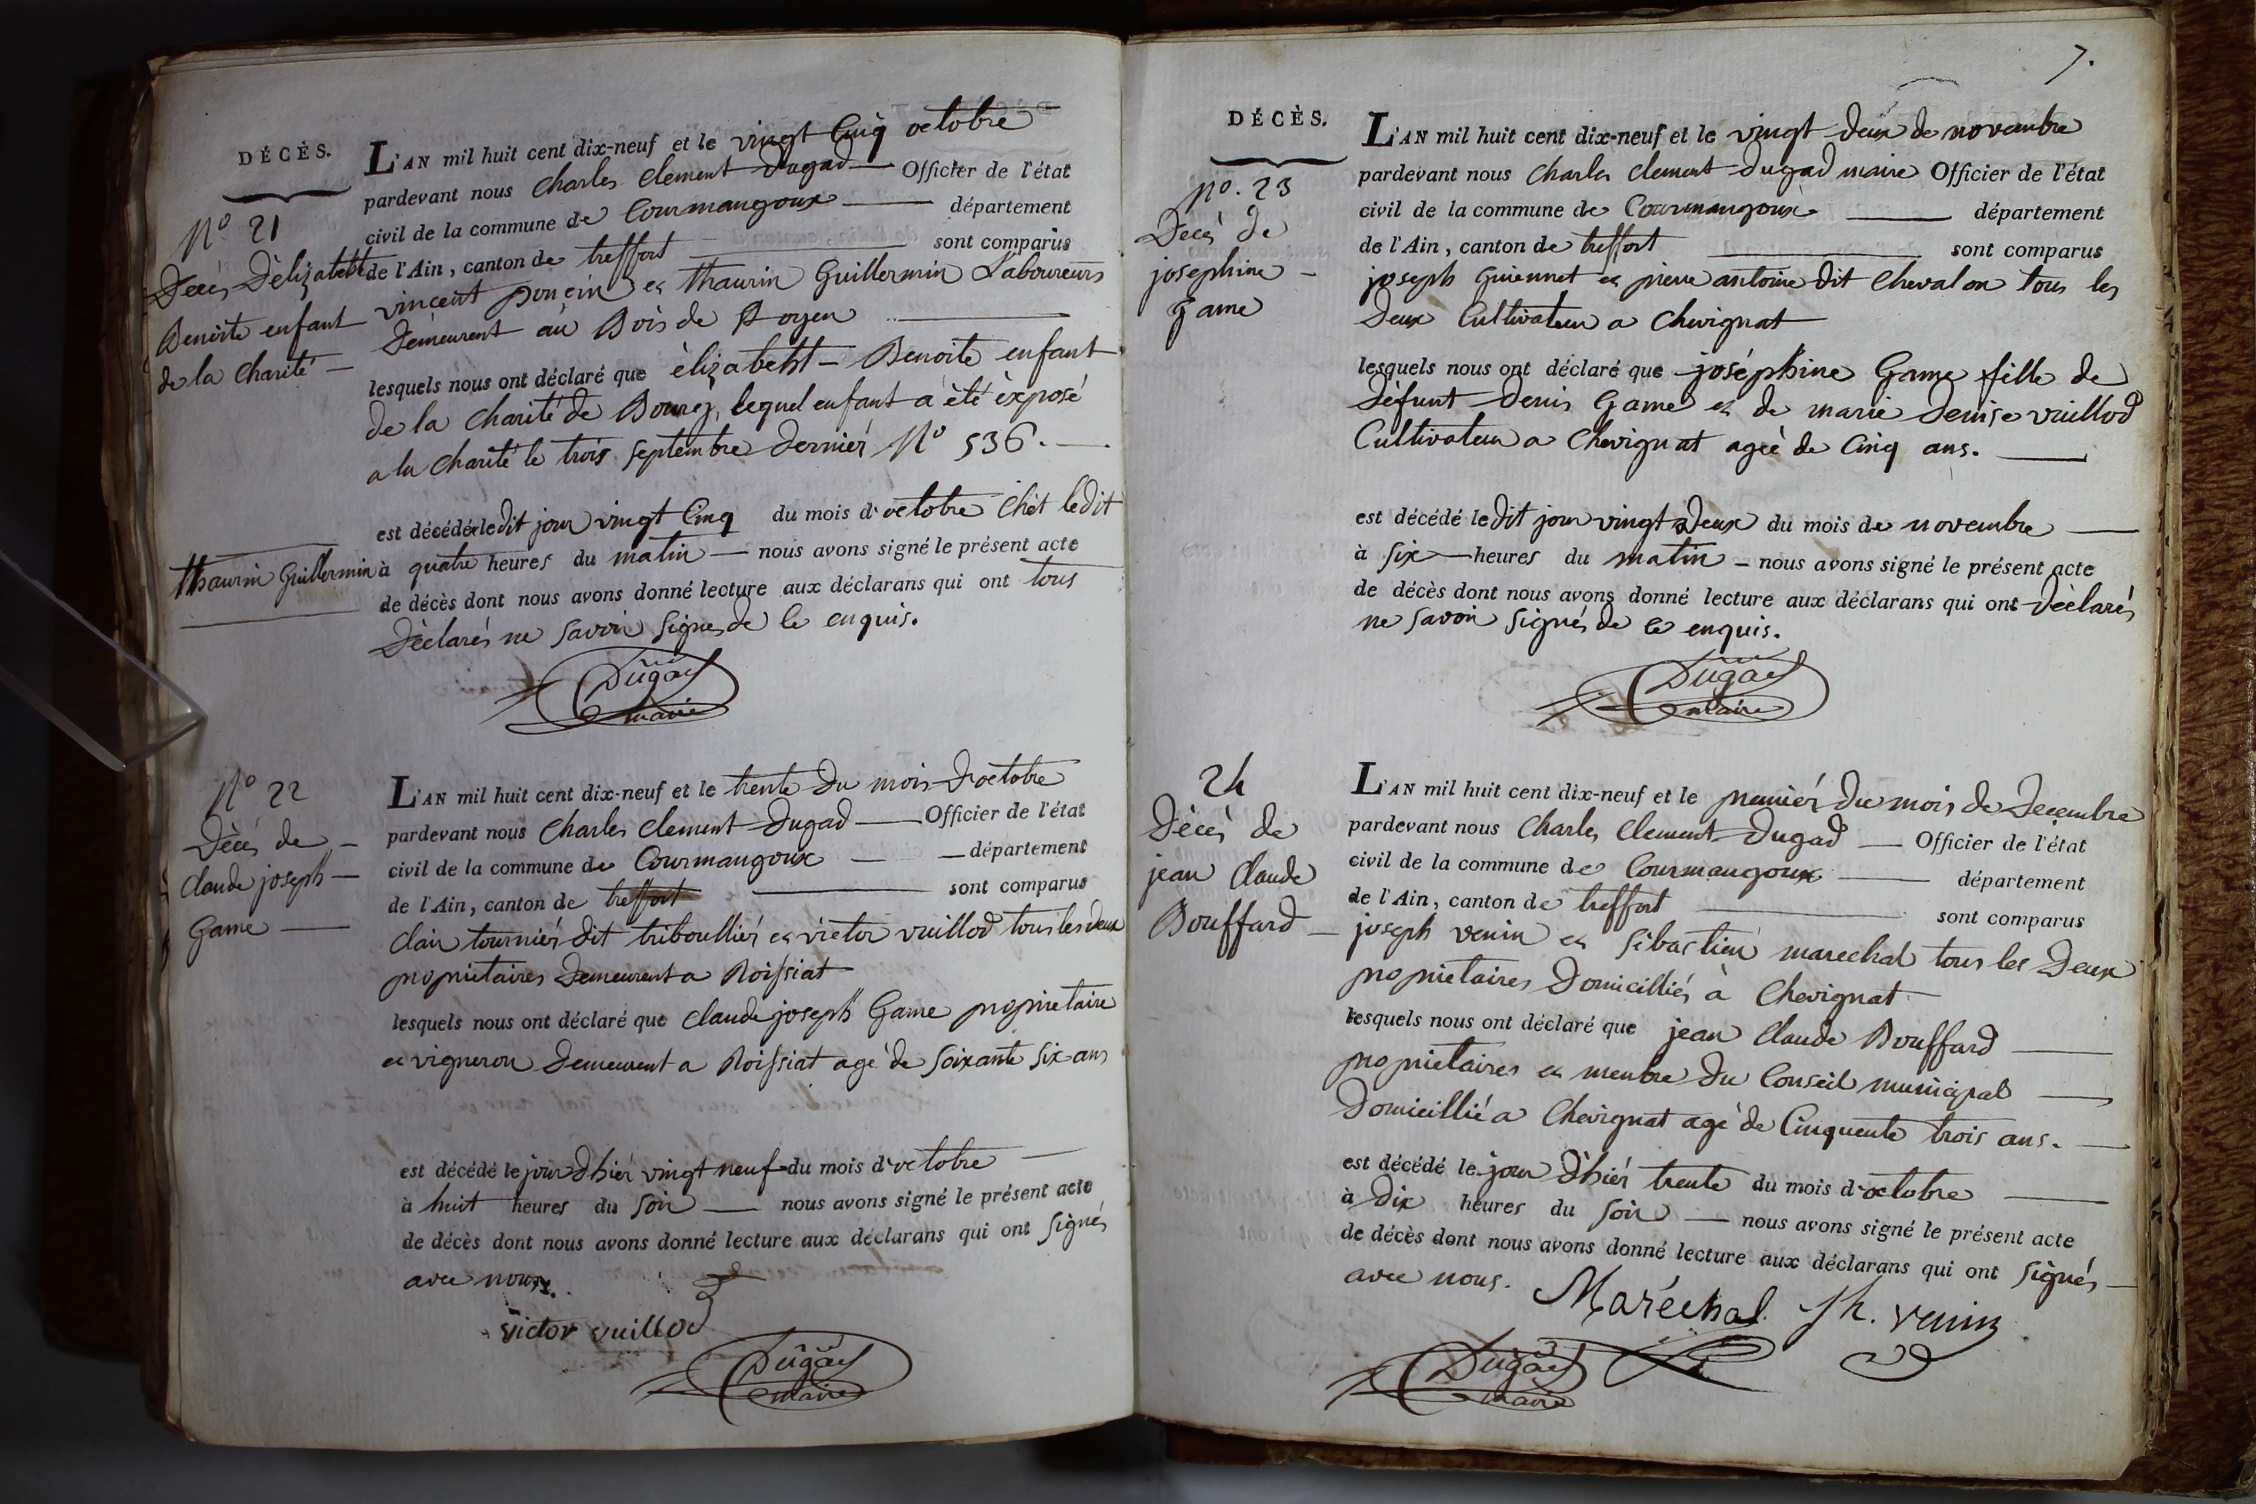 DÉCÈS.
N° 21
Décès Délizabeht
Benoite enfant
de la charité —
L'AN mil huit cent dix-neuf et le vingt Cinq octobre
pardevant nous Charles Clement Dugad — Officier de l'état
civil de la commune de Courmangoux — département
de l'Ain, canton de treffort — sont comparus
vincent poncin et thaurin Guillermin Laboureurs
Demeurent au Bois de
lesquels nous ont déclaré que èlizabeht — Benoite enfant
de la charité de Bourg, lequel enfant a été èxposé
a la charité le trois septembre dernier N° 536. —
est décédé ledit jour vingt Cinq du mois d'octobre Chèt ledit
thaurin Guillermin
à quatre heures du matin — nous avons signé le présent acte
de décès dont nous avons donné lecture aux déclarans qui ont tous
Déclarés ne savoir signer de ce enquis.
Dugad
maire
N° 22
Décés de —
Claude joseph —
Game —
L'AN mil huit cent dix-neuf et le trente du mois D'octobre
pardevant nous Charles Clement Dugad — Officier de l'état
civil de la commune de Courmangoux — — département
de l'Ain, canton de treffort — sont comparus
Clair tourniér dit triboulliér et victor vuillod tous les deux
propriétaires Demeurent a Roissiat
lesquels nous ont déclaré que Claude joseph Game propriétaire
et vigneron Demeurent a Roissiat agé de soixante six ans
est décédé le jour d'hiér vingt neuf du mois d'octobre —
à huit heures du soir — nous avons signé le présent acte
de décès dont nous avons donné lecture aux déclarans qui ont signés
avec nous.
victor vuillod
Dugad
maire
7.
DÉCÈS.
N°. 23
Décès de
josephine —
game
L'AN mil huit cent dix-neuf et le vingt deux de novembre
pardevant nous Charles Clement Dugad maire Officier de l'état
civil de la commune de Courmangoux — département
de l'Ain, canton de treffort — sont comparus
joseph Guiennet et pierre antoine dit Chevalon tous les
Deux Cultivateur a Chevignat
lesquels nous ont déclaré que joséphine Game fille de
Défunt Denis Game et de marie Denise vuillod
Cultivateur a Chevignat ageé de Cinq ans. —
est décédé ledit jour vingt Deux du mois de novembre —
à six — heures du matin — nous avons signé le présent acte
de décès dont nous avons donné lecture aux déclarans qui ont Déclarés
ne savoir signés de ce enquis.
Dugad
maire
24
Décès de
jean Claude
Bouffard —
L'AN mil huit cent dix-neuf et le premiér du mois de Decembre
pardevant nous Charles Clement Dugad — Officier de l'état
civil de la commune de Courmangoux — département
de l'Ain, canton de treffort — sont comparus
joseph venin et sibastien marechal tous les Deux
propriétaires Domicilliés à Chevignat
lesquels nous ont déclaré que jean Claude Bouffard —
propriétaires et menbre du Conseil municipal —
Domicillié a Chevignat agé de Cinquente trois ans. —
est décédé le jour d'hiér trente du mois d'octobre —
à Dix heures du soir — nous avons signé le présent acte
de décès dont nous avons donné lecture aux déclarans qui ont signés —
avec nous. Maréchal. Jh. venin
Dugad
maire